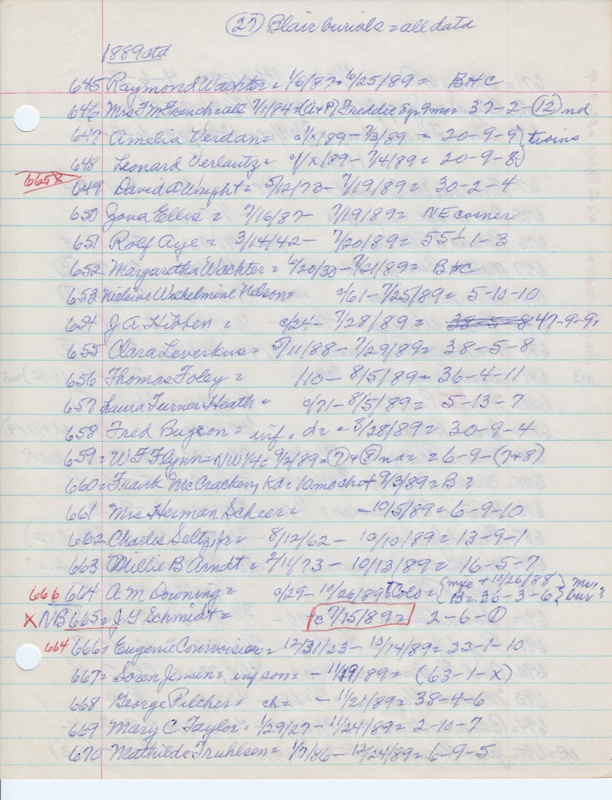 (27) Blair burials = all data
1889 ctd
645 Raymond Wachter = 1/6/87 - 6/25/89 = B+C
646 Mrs F M Frenchs 7/1/84 = (A+P) Freddie 5yr 9mos = 37-2-(12) nd
649 Amelia Verdan = c/x/89 - 7/3/89 = 20-9-9 } twins
648 Leonard Verlautz = c/x/89 - 7/4/89 = 20-9-8
665X 649 David A Wright = 5/12/73 - 7/19/89 = 30-2-4
650 Zona Ellis = 7/16/87 - 7/19/89 = NE corner
651 Rolf Aye = 3/14/42 - 7/20/89 = 55-1-3
652 Margaretha Wachter = 6/20/30 - 7/21/89 = B+C
653 Wilhelmine Nelson = c/61 - 7/25/89 = 5-10-10
654 J A Hibben = c/24 - 7/28/89 = 38-5-8 47-9-9
655 Clara Leverkus = 5/11/88 - 7/29/89 = 38-5-8
656 Thomas Foley = /10 - 8/5/89 = 36-4-11
657 Laura Turner Heath = c/71 - 8/5/89 = 5-13-7
658 Fred Bugeon = inf. d = 8/28/89 = 30-9-4
659 = W F Flynn = NW 1/4 = 9/2/89 = (7)+(8) nd = 6-9-(7+8)
660 = Frank McCracken, Kd = 10 mo ch + 9/3/89 = B ?
661 Mrs Herman Scheer = - 10/5/89 = 6-9-10
662 Charles Seltz, Jr = 8/12/62 - 10/10/89 = 13-9-1
663 Millie B Arndt = 2/11/73 - 10/13/89 = 16-5-7
666 664 A. M. Downing = c/29 - 10/26/89 + Colo = { mye + 11/26/88 B = 36-3-6 } mv. bur?
X NB 665 = J G Schmidt = + c 7/15/89 = 2-6-(1)
664 666 = Eugenie Courvoisier = 12/31/23 - 10/14/89 = 22-1-10
667 = Soren Jensen = inf son = - 11/19/89 = (63-1-x)
668 George Pilcher = ch = - 11/21/89 = 38-4-6
669 Mary C Taylor = 1/29/27 - 11/24/89 = 2-10-7
670 Mathilde Truhlsen = 1/7/86 - 12/24/89 = 6-9-5